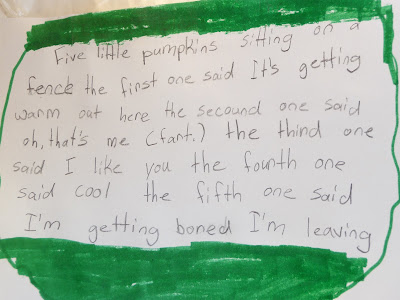 Five little pumpkins sitting on a
fence the first one said It's getting
warm out here the secound one said
oh, that's me (fart.) the third one
said I like you the fourth one
said cool the fifth one said
I'm getting bored I'm leaving